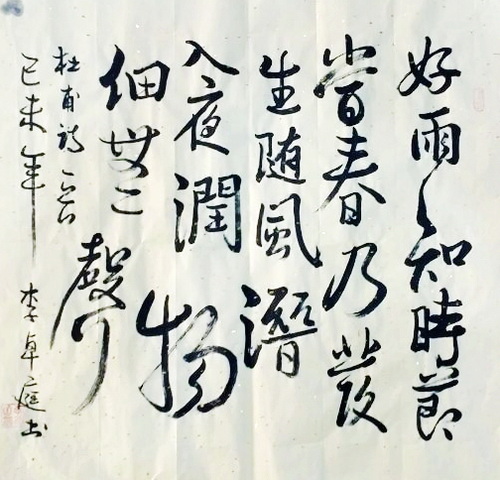 好雨知時節
當春乃發
生随風潛
入夜潤物
細無聲
杜甫詩一首
己未年 李卓庭书